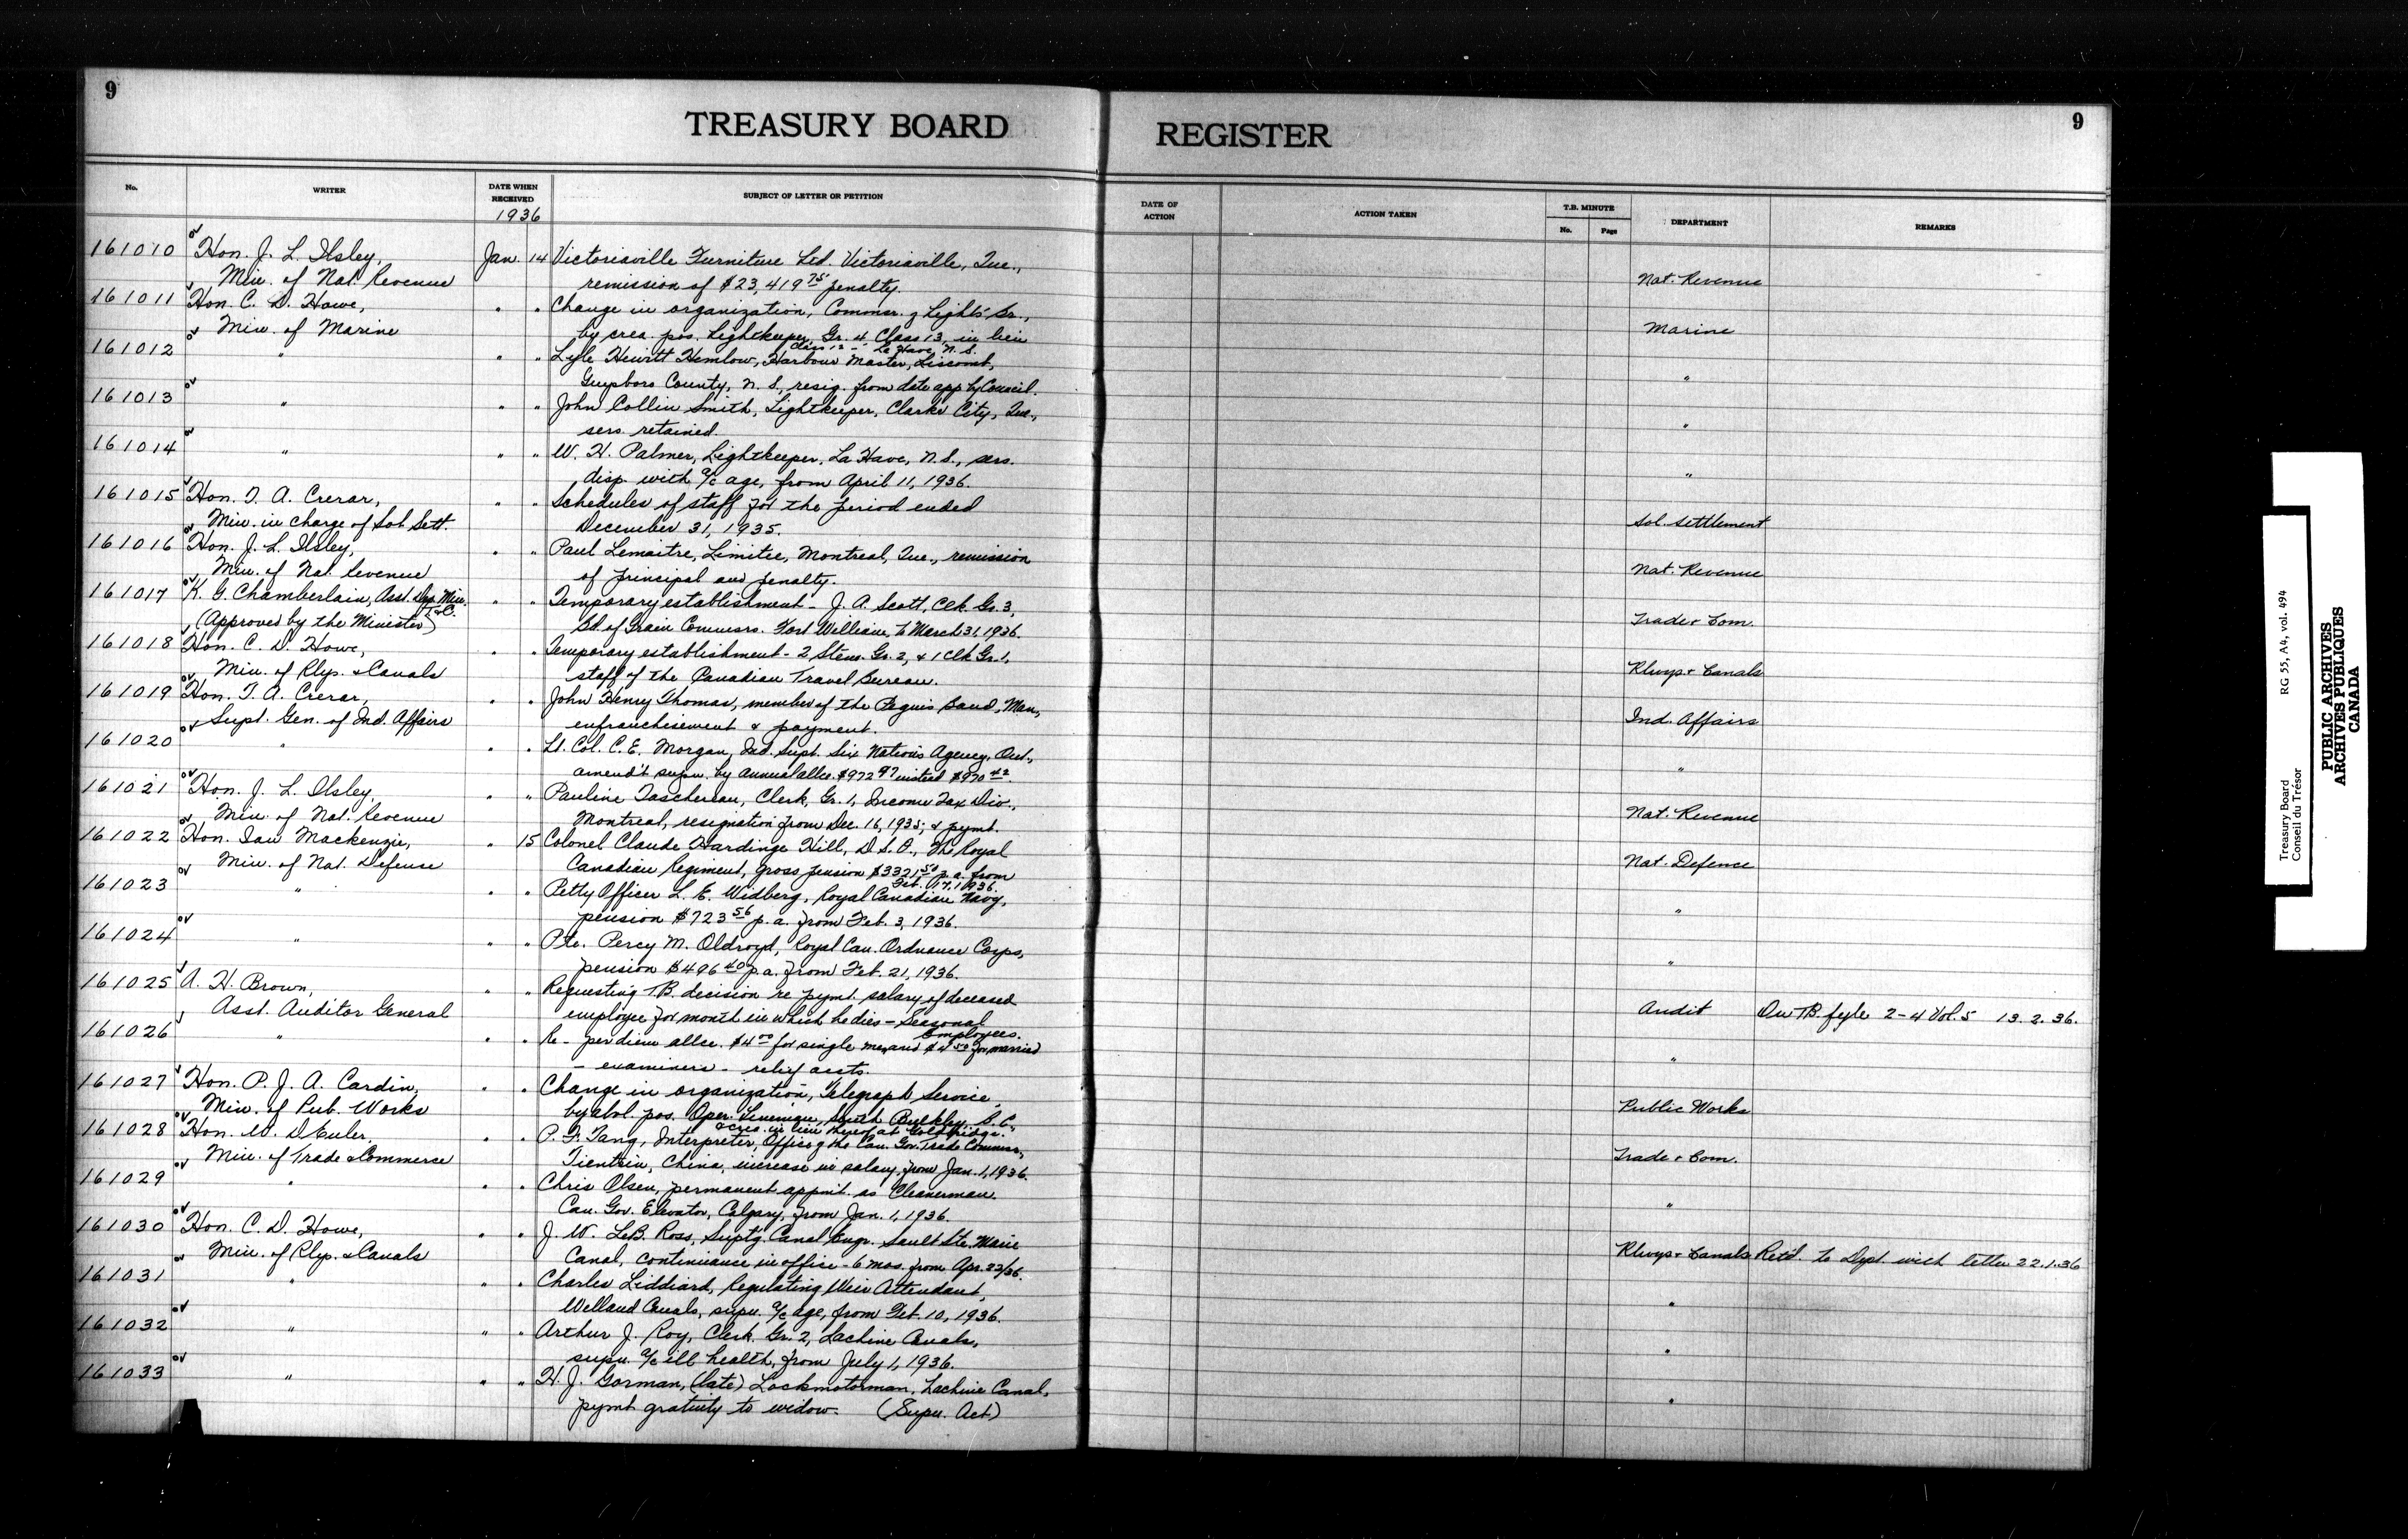 9
TREASURY BOARD REGISTER
9
No. WRITER DATE WHEN RECEIVED SUBJECT OF LETTER OR PETITION DATE OF ACTION ACTION TAKEN T.B. MINUTE No. Page DEPARTMENT REMARKS
1936
161010 Hon. J. L. Ilsley, Jan. 14 Victoriaville Furniture Ltd. Victoriaville, Que.,
Min. of Nat. Revenue remission of $23,419 75 penalty. Nat. Revenue
161011 Hon. C. D. Howe, " " Change in organization, Commsr. of Lights' Br.,
Min. of Marine by crea. pos. Lightkeeper, Gr. 4 Class 13, in lieu Marine
Class 12 - La Have, N.S.
161012 " " " Lyle Hewitt Hemlow, Harbour Master, Liscomb,
Guysboro County, N.S., resig. from date app. by Council. "
161013 " " " John Collin Smith, Lightkeeper, Clarke City, Que.,
sers. retained. "
161014 " " " W. H. Palmer, Lightkeeper, La Have, N.S., sers.
disp. with a/c age, from April 11, 1936. "
161015 Hon. T. A. Crerar, " " Schedules of staff for the period ended
Min. in charge of Sol. Sett. December 31, 1935. Sol. Settlement
161016 Hon. J. L. Ilsley, " " Paul Lemaitre, Limitee, Montreal, Que., remission
Min. of Nat. Revenue of principal and penalty. Nat. Revenue
161017 K. G. Chamberlain, Asst. Dep. Min. T.&C. " " Temporary establishment - J. A. Scott, Clk. Gr. 3,
(Approved by the Minister) Bd. of Grain Commsrs. Fort William, to March 31, 1936. Trade & Com.
161018 Hon. C. D. Howe, " " Temporary establishment - 2 Sten. Gr. 2, & 1 Clk Gr. 1,
Min. of Rlys. & Canals staff of the Canadian Travel Bureau. Rlwys & Canals
161019 Hon. T. A. Crerar, " " John Henry Thomas, member of the Peguis Band, Man.,
Supt. Gen. of Ind. Affairs enfranchisement & payment. Ind. Affairs
161020 " " " Lt. Col. C. E. Morgan, Ind. Supt. Six Nations Agency, Ont.,
amend't supn. by annual allce. $972 97 instead $970 42. "
161021 Hon. J. L. Ilsley, " " Pauline Taschereau, Clerk, Gr. 1, Income Tax Div.,
Min. of Nat. Revenue Montreal, resignation from Dec. 16, 1935, & pymt. Nat. Revenue
161022 Hon. Ian Mackenzie, " 15 Colonel Claude Hardinge Hill, D.S.O., The Royal
Min. of Nat. Defense Canadian Regiment, gross pension $3321 50 p.a. from Nat. Defence
Feb. 17, 1936.
161023 " " " Petty Officer L. E. Widberg, Royal Canadian Navy,
pension $723 56 p.a. from Feb. 3, 1936. "
161024 " " " Pte. Percy M. Oldroyd, Royal Can. Ordnance Corps,
pension $496 40 p.a. from Feb. 21, 1936. "
161025 A. H. Brown, " " Requesting T.B. decision re pymt. salary of deceased
Asst. Auditor General employee for month in which he dies - Seasonal Audit On T.B. fyle 2-4 Vol. 5 13.2.36.
Employees.
161026 " " " Re - per diem allce. $4 00 for single men and $4 50 for married
- examiners - relief accts. "
161027 Hon. P. J. A. Cardin, " " Change in organization, Telegraph Service,
Min. of Pub. Works by abol. pos. Oper. Lineman, South Bulkley, B.C. Public Works
& crea. in lieu thereof at Goldbridge.
161028 Hon. W. D Euler, " " P. F. Tang, Interpreter, Office of the Can. Gov. Trade Commsr.,
Min. of Trade & Commerce Tientsin, China, increase in salary, from Jan. 1, 1936. Trade & Com.
161029 " " " Chris Olsen, permanent appmt. as Cleanerman
Can. Gov. Elevator, Calgary, from Jan. 1, 1936. "
161030 Hon. C. D. Howe, " " J. W. LeB. Ross, Suptg. Canal Engr. Sault Ste. Marie
Min. of Rlys. & Canals Canal, continuance in office - 6 mos. from Apr. 23/36. Rlwys & Canals Ret'd. to Dept. with letter 22.1.36
161031 " " " Charles Liddiard, Regulating Weir Attendant,
Welland Canals, supn. a/c age, from Feb. 10, 1936. "
161032 " " " Arthur J. Roy, Clerk, Gr. 2, Lachine Canals,
supn. a/c ill health, from July 1, 1936. "
161033 " " " H. J. Gorman, (late) Lockmotorman, Lachine Canal,
pymt. gratuity to widow. (Supn. Act) "
Treasury Board RG 55, A4, vol. 494
Conseil du Trésor
PUBLIC ARCHIVES
ARCHIVES PUBLIQUES
CANADA